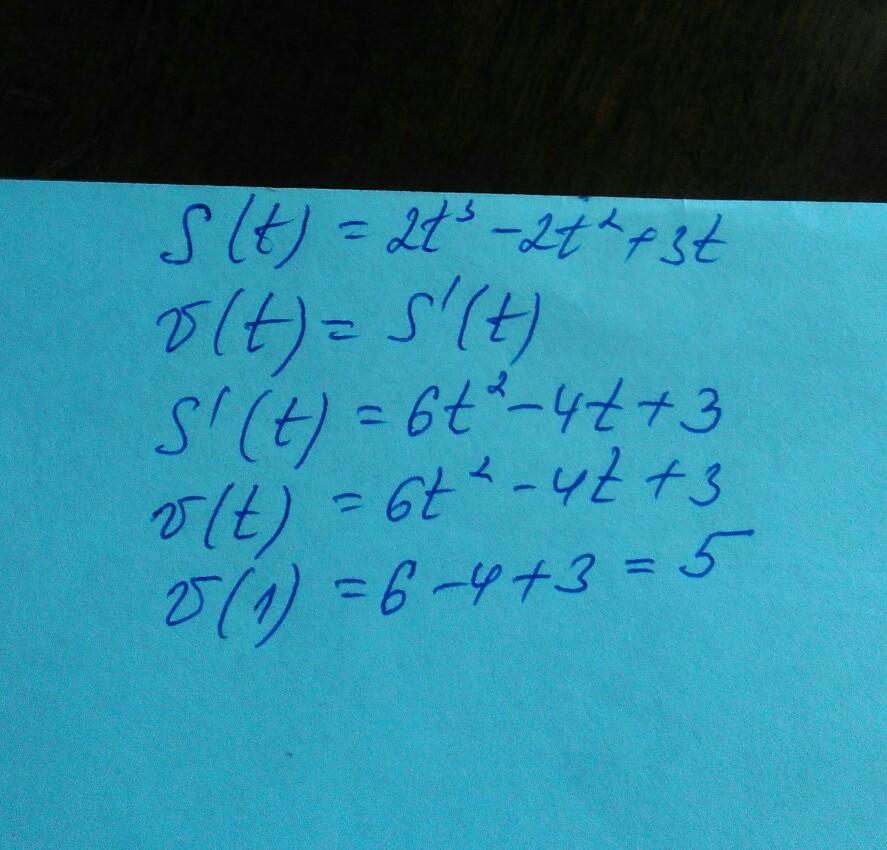 S(t) = 2t³ - 2t² + 3t
v(t) = S'(t)
S'(t) = 6t² - 4t + 3
v(t) = 6t² - 4t + 3
v(1) = 6 - 4 + 3 = 5